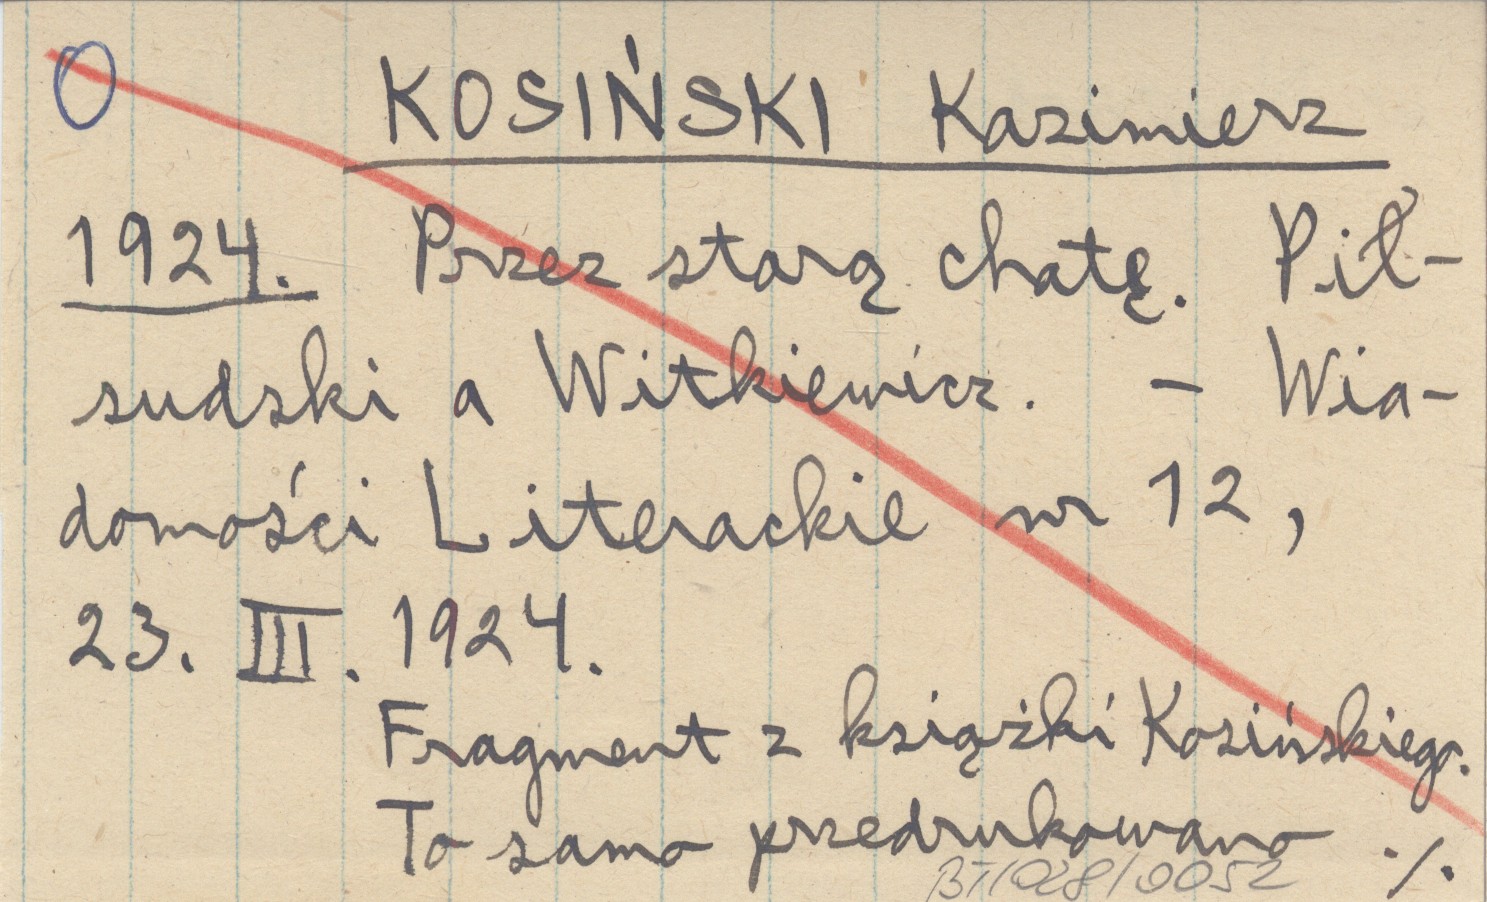 KOSIŃSKI Kazimierz
1924. Przez starą chatę. Pił-
sudski a Witkiewicz. - Wia-
domości Literackie nr 12,
23. III. 1924.
Fragment z książki Kosińskiego.
To samo przedrukowano ./.
BT/028/0052